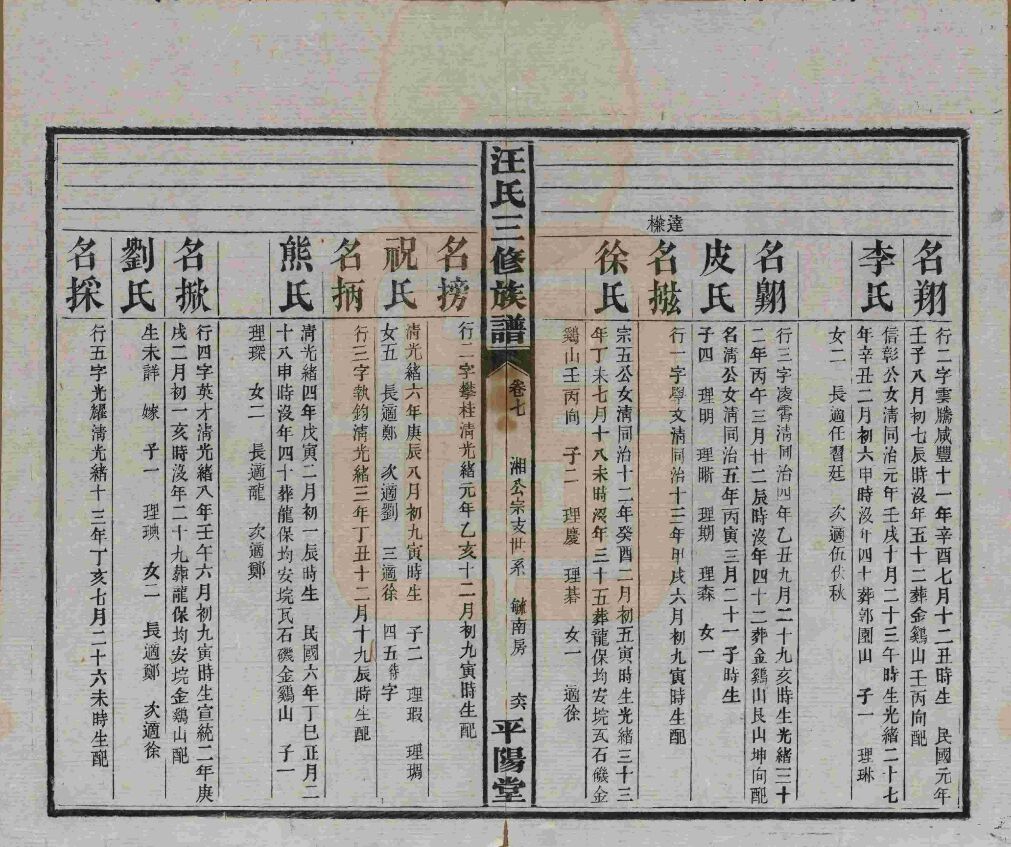 達榤
名翔
行二字雲騰咸豐十一年辛酉七月十二丑時生 民國元年
壬子八月初七辰時沒年五十二葬金鷄山壬丙向配
李氏
信彰公女清同治元年壬戌十月二十三午時生光緒二十七
年辛丑二月初六申時沒年四十葬郭園山 子一 理琳
女二 長適任習廷 次適伍伏秋
名翺
行三字凌霄清同治四年乙丑九月二十九亥時生光緒三十
二年丙午三月廿二辰時沒年四十二葬金鷄山艮山坤向配
皮氏
名清公女清同治五年丙寅三月二十一子時生
子四 理明 理晰 理期 理森 女一
名
行一字學文清同治十三年甲戌六月初九寅時生配
徐氏
宗五公女清同治十二年癸酉二月初五寅時生光緒三十三
年丁未七月十八未時沒年三十五葬龍保均安垸瓦石磯金
鷄山壬丙向 子二 理慶 理碁 女一 適徐
汪氏三修族譜 卷七 湘公宗支世系 毓南房 六 平陽堂
名搒
行二字攀桂清光緒元年乙亥十二月初九寅時生配
祝氏
清光緒六年庚辰八月初九寅時生 子二 理瑕 理琱
女五 長適鄭 次適劉 三適徐 四五待字
名抦
行三字執鈞清光緒三年丁丑十二月十九辰時生配
熊氏
清光緒四年戊寅二月初一辰時生 民國六年丁巳正月二
十八申時沒年四十葬龍保均安垸瓦石磯金鷄山 子一
理琛 女二 長適龍 次適鄭
名掀
行四字英才清光緒八年壬午六月初九寅時生宣統二年庚
戌二月初一亥時沒年二十九葬龍保均安垸金鷄山配
劉氏
生未詳 嫁 子一 理琠 女二 長適鄭 次適徐
名採
行五字光耀清光緒十三年丁亥七月二十六未時生配